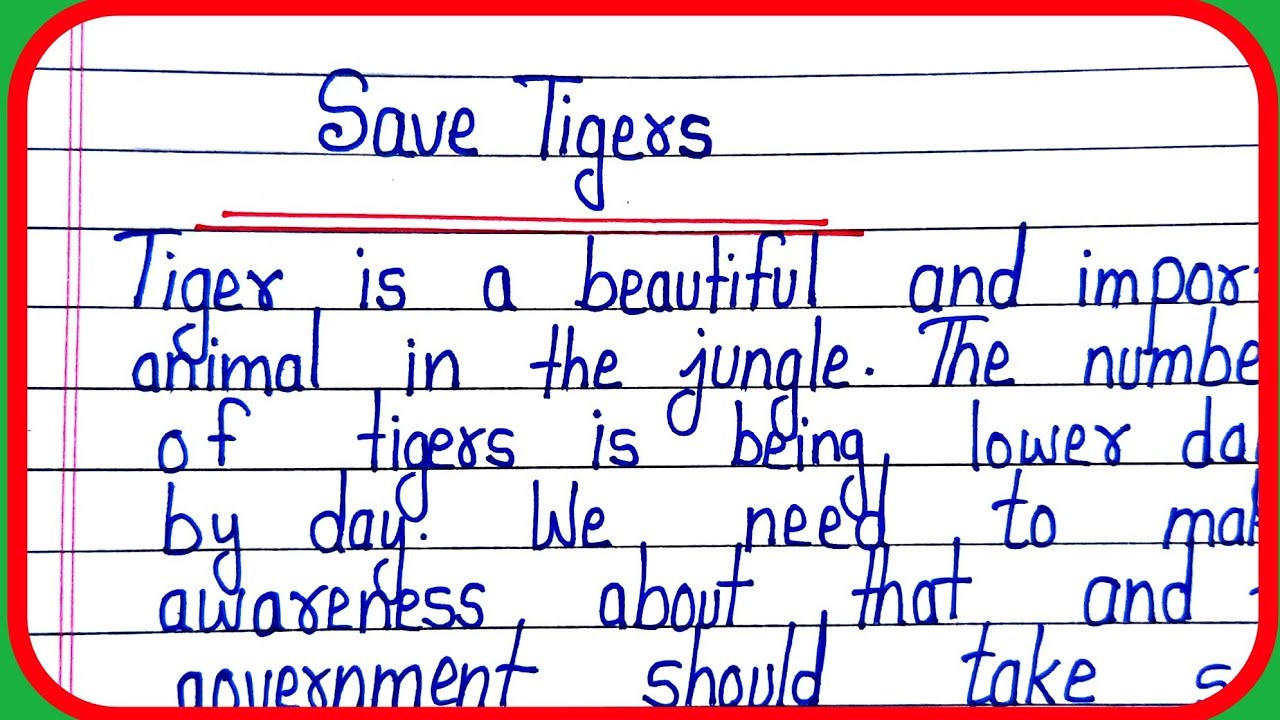 Save Tigers
Tiger is a beautiful and impor
animal in the jungle. The numbe
of tigers is being lower da
by day. We need to mak
awareness about that and
government should take s